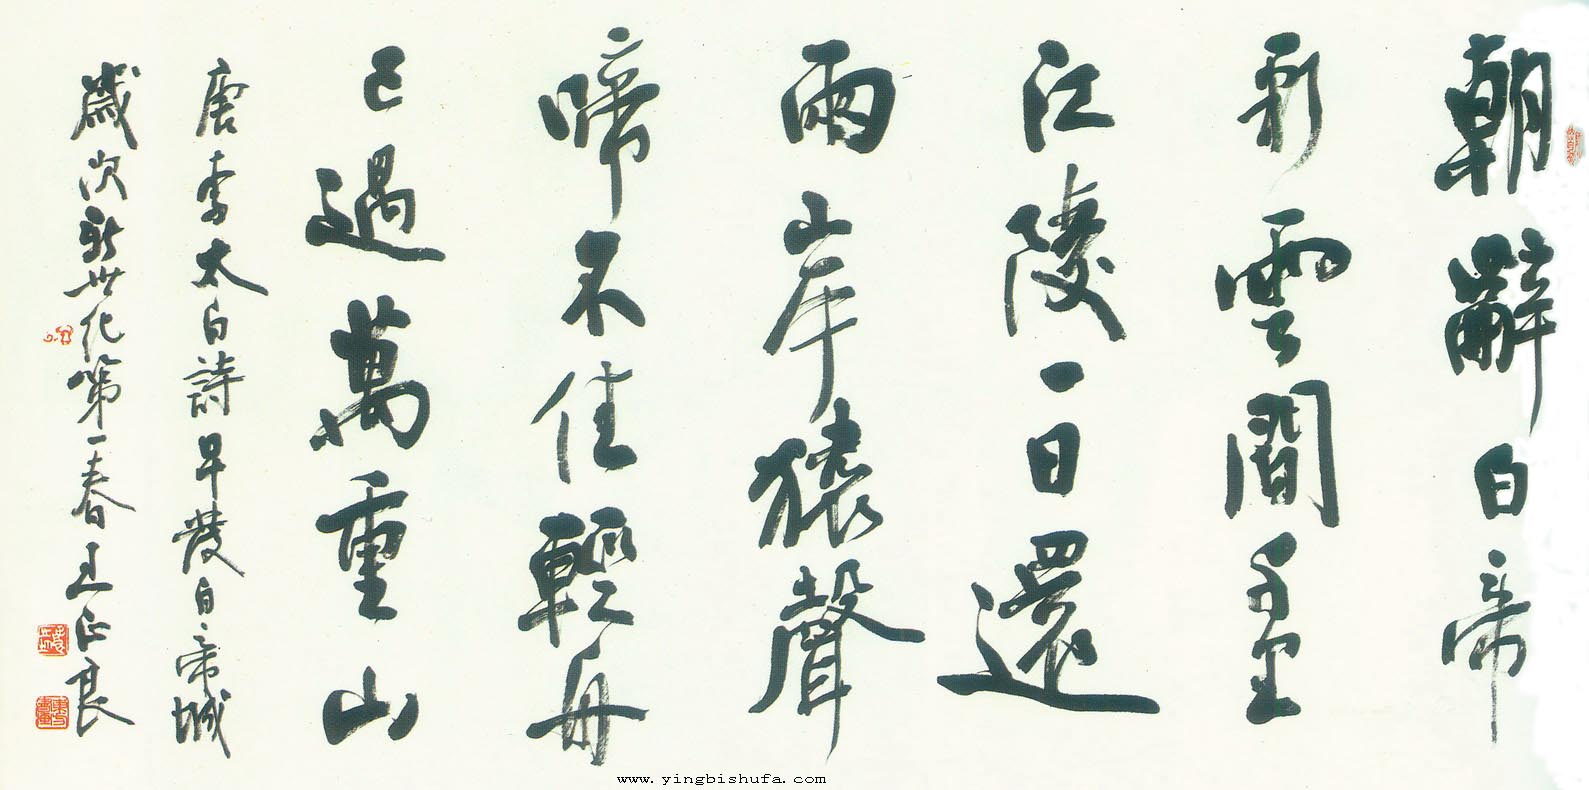 朝辭白帝
彩雲間千里
江陵一日還
兩岸猿聲
啼不住輕舟
已過萬重山
唐李太白詩早發白帝城
歲次新世纪第一春王正良
www.yingbishufa.com